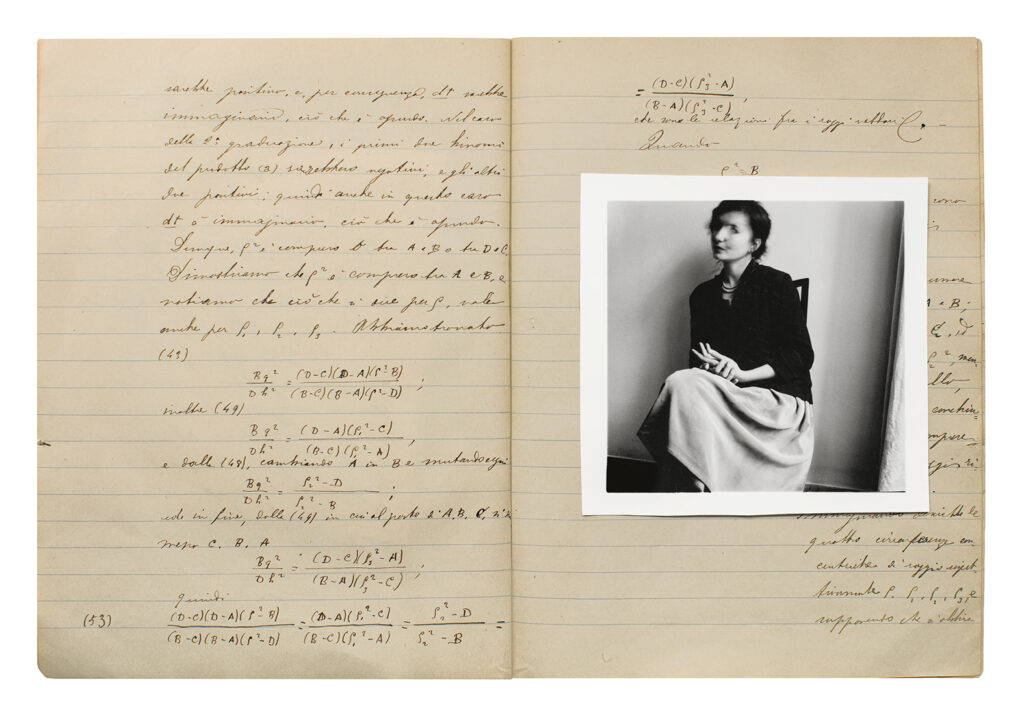 sarebbe positivo, e, per conseguenza, dt sarebbe
immaginario, ciò che è assurdo. Nel caso
della 2ª graduazione, i primi due binomi
del prodotto (a) sarebbero negativi, e gli altri
due positivi; quindi anche in questo caso
dt è immaginario, ciò che è assurdo.
Dunque, ρ² è compreso tra A e B o tra D e C.
Dimostriamo che ρ² è compreso tra A e B, e
notiamo che ciò che si dice per ρ, vale
anche per ρ₁, ρ₂, ρ₃. Abbiamo trovato
(49)
Bg²/Dh² = (D-C)(D-A)(ρ²-B)/(B-C)(B-A)(ρ²-D) ;
inoltre (49)
Bg²/Dh² = (D-A)(ρ₁²-C)/(B-C)(ρ₁²-A) ,
e dalle (48), cambiando A in B e mutando segni
Bg²/Dh² = ρ₂²-D/ρ₂²-B ;
ed in fine, dalle (49) in cui al posto di A, B, C, si
C, B, A
Bg²/Dh² = (D-C)(ρ₃²-A)/(B-A)(ρ₃²-C) ;
quindi
(53) (D-C)(D-A)(ρ²-B)/(B-C)(B-A)(ρ²-D) = (D-A)(ρ₁²-C)/(B-C)(ρ₁²-A) = ρ₂²-D/ρ₂²-B =
= (D-C)(ρ₃²-A)/(B-A)(ρ₃²-C) ,
che sono le relazioni fra i raggi vettori
Quando
ρ² = B
cono
A e B;
C, ed
conchiu-
quattro circonferenze con-
centriche di raggio rispet-
tivamente ρ, ρ₁, ρ₂, ρ₃, e
supponendo che